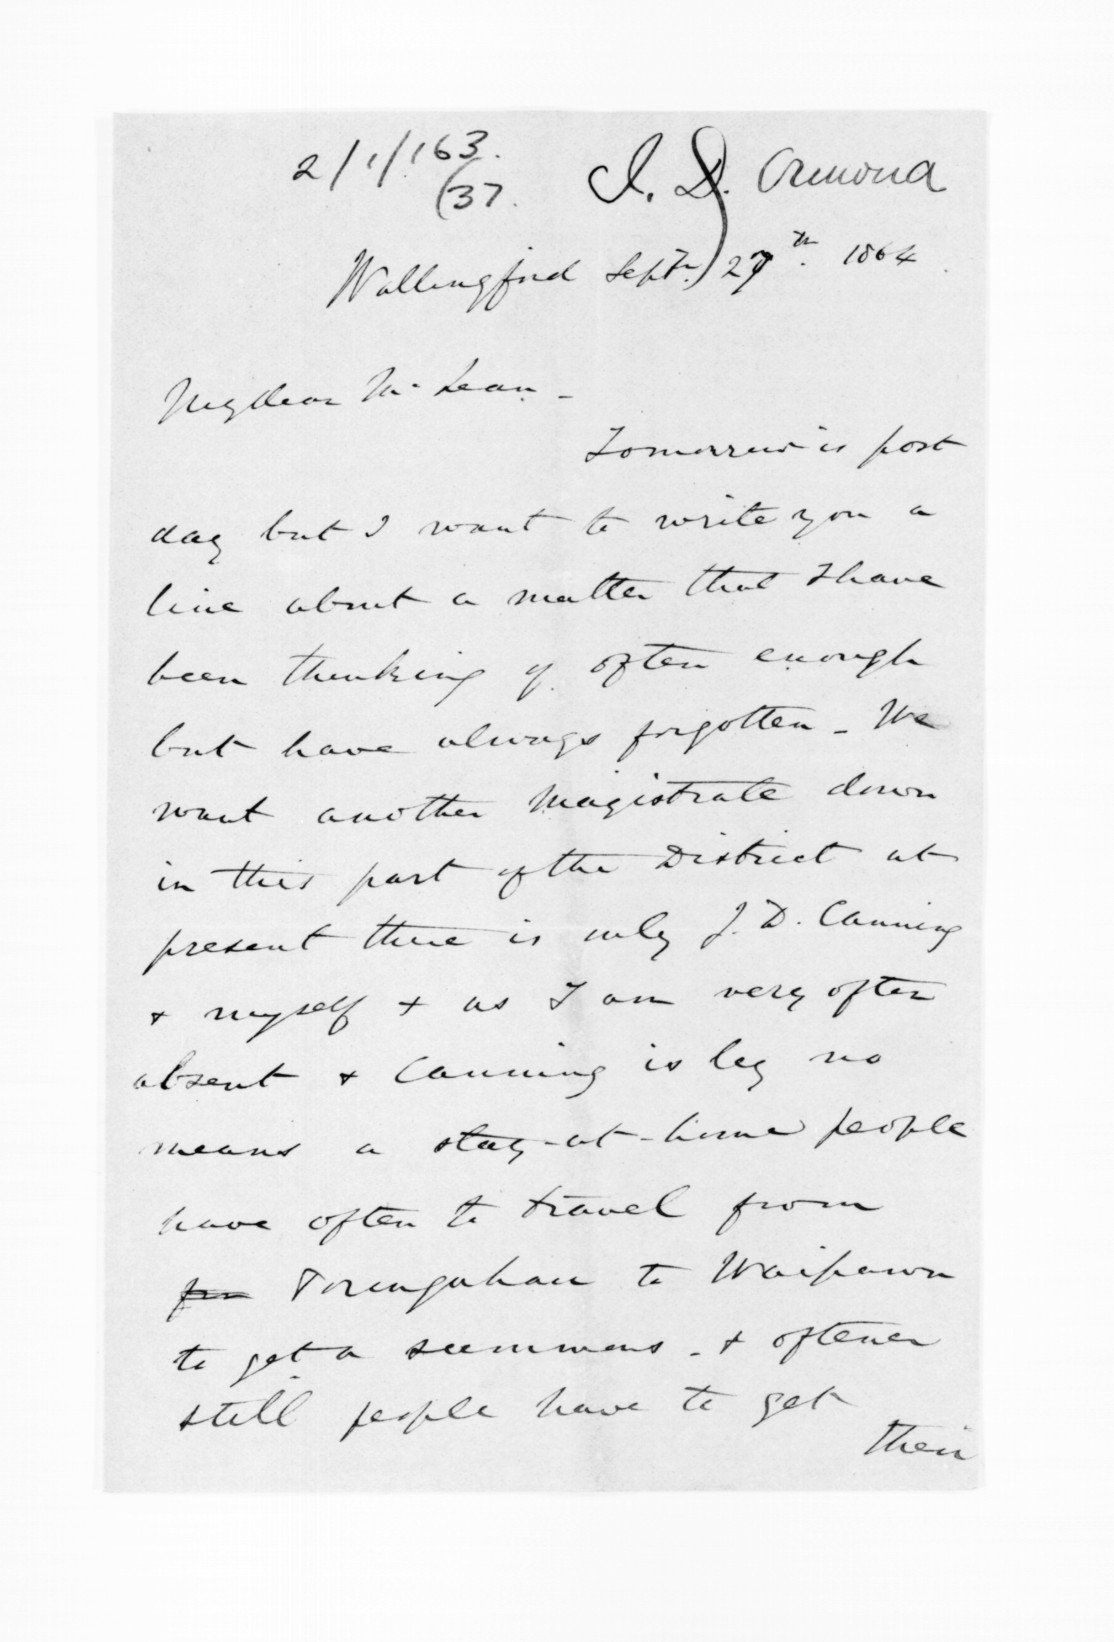 2/1/163.
(37.
J. D. Ormond
Wallingford Septr. 27th. 1864
My dear McLean -
Tomorrow is post
day but I want to write you a
line about a matter that I have
been thinking of often enough
but have always forgotten - We
want another Magistrate down
in this part of the District at
present there is only J. D. Canning
& myself & as I am very often
absent & Canning is by no
means a stay-at-home people
have often to travel from
Porungahau to Waipawa
to get a summons - & oftener
still people have to get
their